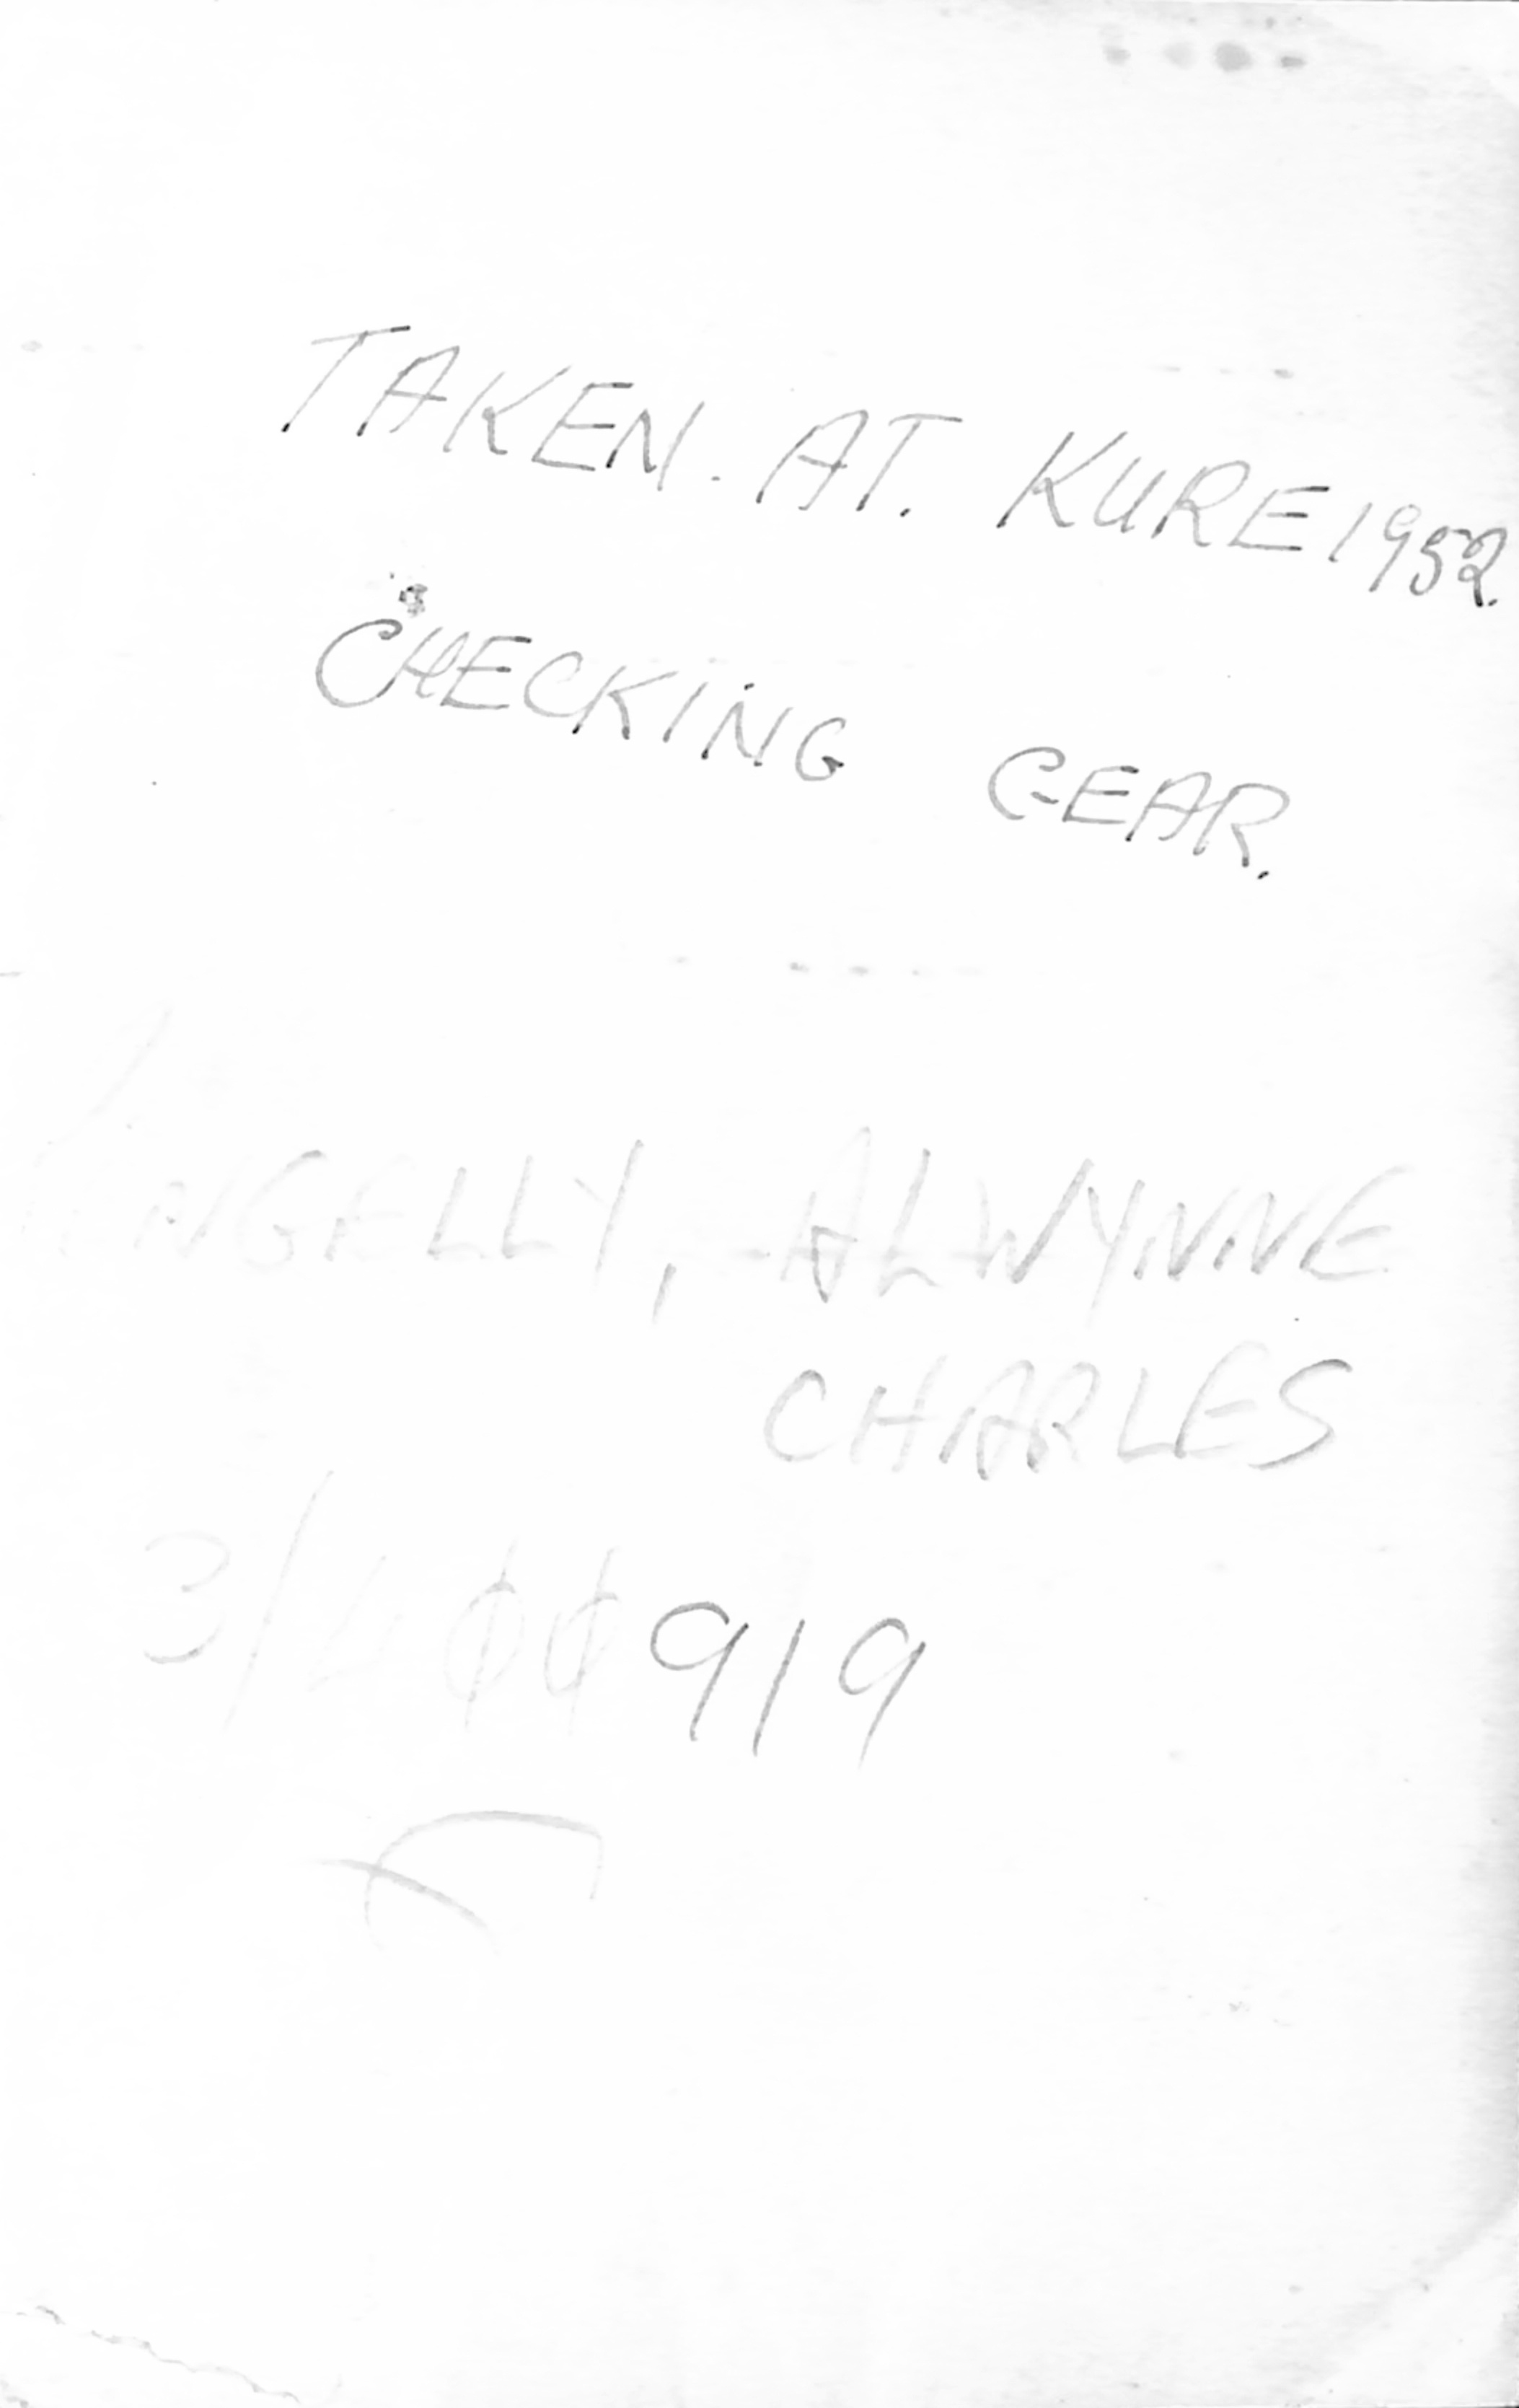 TAKEN. AT. KURE 1952.
CHECKING GEAR.
ALWYNNE
CHARLES
919